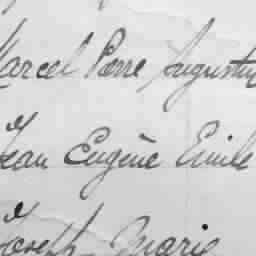 Marcel Pierre Augustin
Jean Eugène Emile
Joseph Marie